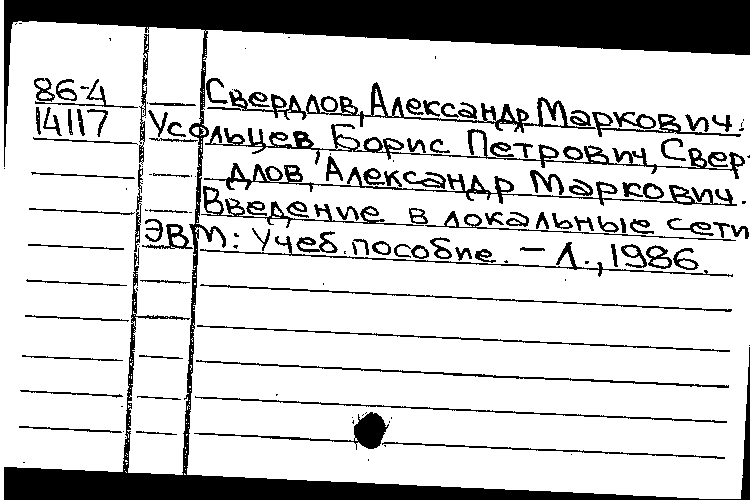 86-4 Свердлов, Александр Маркович.
14117 Усольцев, Борис Петрович, Свер-
длов, Александр Маркович.
Введение в локальные сети
ЭВМ: Учеб. пособие. – Л., 1986.